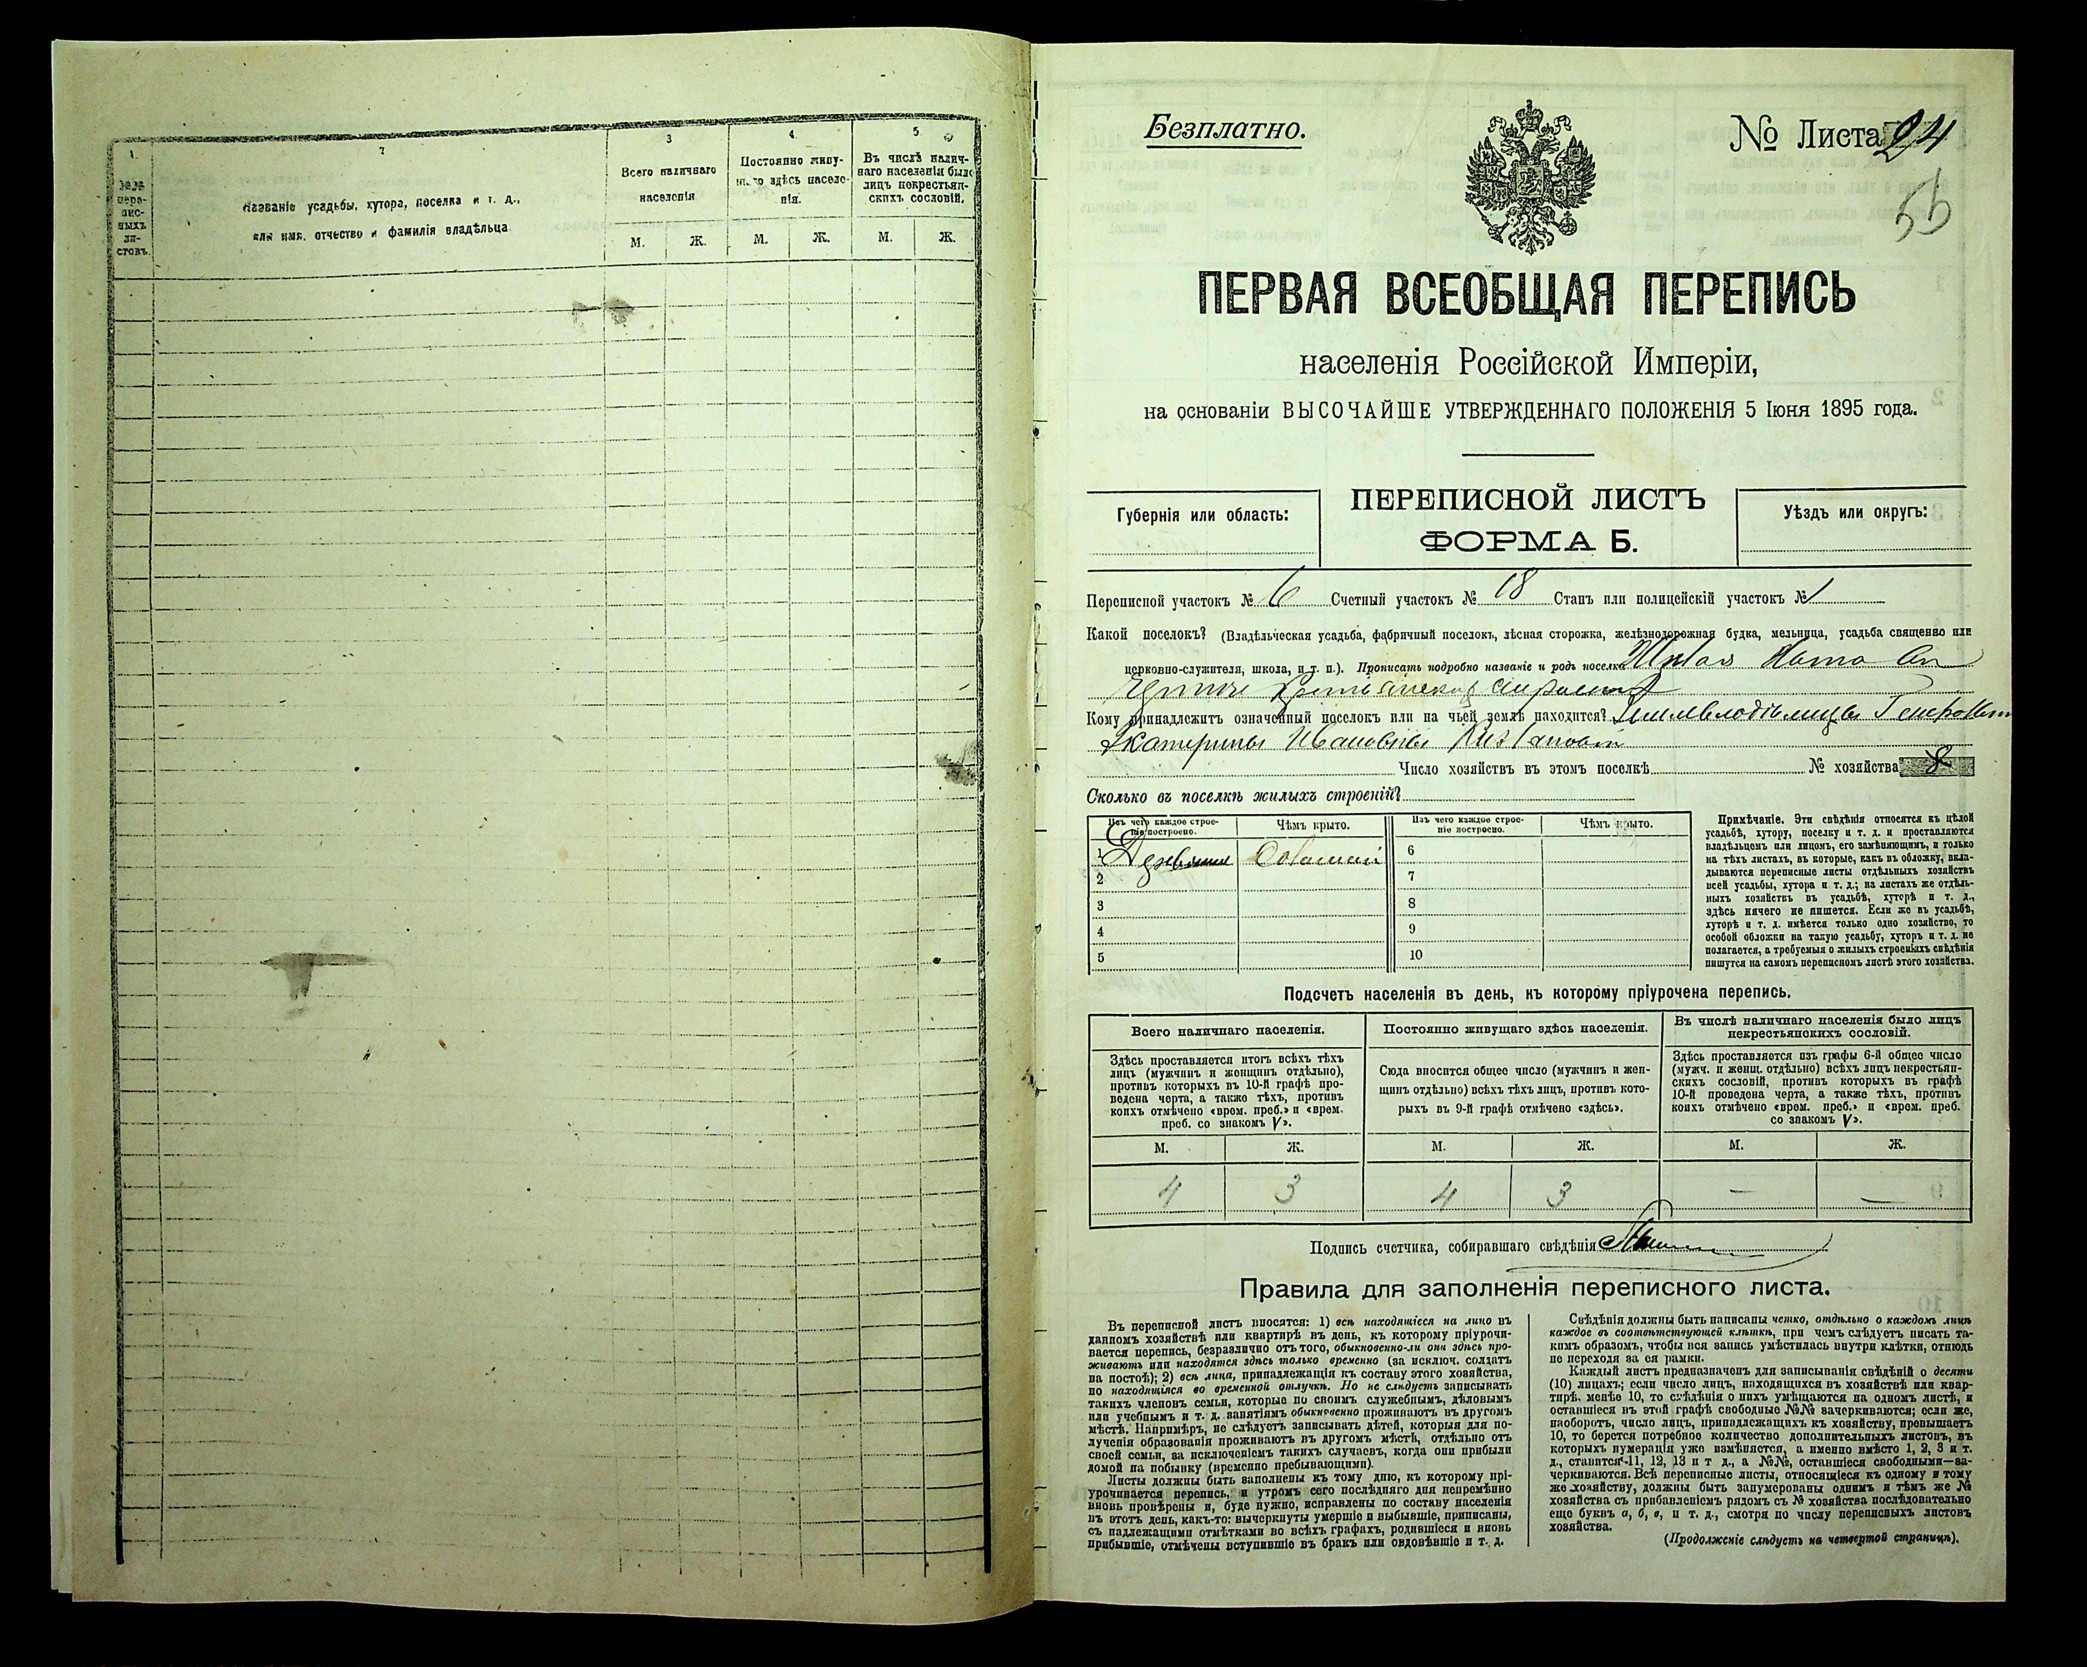 1.
№№ пере-
пис-
ныхъ
ли-
стовъ.
2
Названіе усадьбы, хутора, поселка и т. д.,
или имя, отчество и фамилія владѣльца
3
Всего наличнаго
населенія
М. Ж.
4.
Постоянно живу-
щаго здѣсь населе-
нія.
М. Ж.
5.
Въ числѣ налич-
наго населенія было
лицъ некрестьян-
скихъ сословій.
М. Ж.
Безплатно.
№ Листа 24
55
ПЕРВАЯ ВСЕОБЩАЯ ПЕРЕПИСЬ
населенія Россійской Имперіи,
на основаніи ВЫСОЧАЙШЕ УТВЕРЖДЕННАГО ПОЛОЖЕНІЯ 5 Іюня 1895 года.
Губернія или область:
ПЕРЕПИСНОЙ ЛИСТЪ
ФОРМА Б.
Уѣздъ или округъ:
Переписной участокъ № 6 Счетный участокъ № 18 Станъ или полицейскій участокъ № 1
Какой поселокъ? (Владѣльческая усадьба, фабричный поселокъ, лѣсная сторожка, желѣзнодорожная будка, мельница, усадьба священно или
церковно-служителя, школа, и т. п.). Прописать подробно названіе и родъ поселка
Кому принадлежитъ означенный поселокъ или на чьей землѣ находится? Землевладѣлицы
Екатерины Ивановны
Число хозяйствъ въ этомъ поселкѣ № хозяйства 8
Сколько въ поселкѣ жилыхъ строеній?
Изъ чего каждое строе-
ніе построено.
Чѣмъ крыто.
Изъ чего каждое строе-
ніе построено.
Чѣмъ крыто.
1 6
2 7
3 8
4 9
5 10
Примѣчаніе. Эти свѣдѣнія относятся къ цѣлой
усадьбѣ, хутору, поселку и т. д. и проставляются
владѣльцемъ или лицомъ, его замѣняющимъ, и только
на тѣхъ листахъ, въ которые, какъ въ обложку, вкла-
дываются переписные листы отдѣльныхъ хозяйствъ
всей усадьбы, хутора и т. д.; на листахъ же отдѣль-
ныхъ хозяйствъ въ усадьбѣ, хуторѣ и т. д.,
здѣсь ничего не пишется. Если же въ усадьбѣ,
хуторѣ и т. д. имѣется только одно хозяйство, то
особой обложки на такую усадьбу, хуторъ и т. д. не
полагается, а требуемыя о жилыхъ строеніяхъ свѣдѣнія
пишутся на самомъ переписномъ листѣ этого хозяйства.
Подсчетъ населенія въ день, къ которому пріурочена перепись.
Всего наличнаго населенія.
Здѣсь проставляется итогъ всѣхъ тѣхъ
лицъ (мужчинъ и женщинъ отдѣльно),
противъ которыхъ въ 10-й графѣ про-
ведена черта, а также тѣхъ, противъ
коихъ отмѣчено «врем. преб.» и «врем.
преб. со знакомъ V».
Постоянно живущаго здѣсь населенія.
Сюда вносится общее число (мужчинъ и жен-
щинъ отдѣльно) всѣхъ тѣхъ лицъ, противъ кото-
рыхъ въ 9-й графѣ отмѣчено «здѣсь».
Въ числѣ наличнаго населенія было лицъ
некрестьянскихъ сословій.
Здѣсь проставляется изъ графы 6-й общее число
(мужч. и женщ. отдѣльно) всѣхъ лицъ некрестьян-
скихъ сословій, противъ которыхъ въ графѣ
10-й проведена черта, а также тѣхъ, противъ
коихъ отмѣчено «врем. преб.» и «врем. преб.
со знакомъ V».
М. Ж. М. Ж. М. Ж.
4 3 4 3 — —
Подпись счетчика, собиравшаго свѣдѣнія
Правила для заполненія переписного листа.
Въ переписной листъ вносятся: 1) всѣ находящіеся на лицо въ
данномъ хозяйствѣ или квартирѣ въ день, къ которому пріурочи-
вается перепись, безразлично отъ того, обыкновенно-ли они здѣсь про-
живаютъ или находятся здѣсь только временно (за исключ. солдатъ
на постоѣ); 2) всѣ лица, принадлежащія къ составу этого хозяйства,
но находящіяся во временной отлучкѣ. Но не слѣдуетъ записывать
такихъ членовъ семьи, которые по своимъ служебнымъ, дѣловымъ
или учебнымъ и т. д. занятіямъ обыкновенно проживаютъ въ другомъ
мѣстѣ. Напримѣръ, не слѣдуетъ записывать дѣтей, которыя для по-
лученія образованія проживаютъ въ другомъ мѣстѣ, отдѣльно отъ
своей семьи, за исключеніемъ такихъ случаевъ, когда они прибыли
домой на побывку (временно пребывающими).
Листы должны быть заполнены къ тому дню, къ которому прі-
урочивается перепись, и утромъ сего послѣдняго дня непремѣнно
вновь провѣрены и, буде нужно, исправлены по составу населенія
въ этотъ день, какъ-то: вычеркнуты умершіе и выбывшіе, приписаны,
съ надлежащими отмѣтками во всѣхъ графахъ, родившіеся и вновь
прибывшіе, отмѣчены вступившіе въ бракъ или овдовѣвшіе и т. д.
Свѣдѣнія должны быть написаны четко, отдѣльно о каждомъ лицѣ
каждое въ соотвѣтствующей клѣткѣ, при чемъ слѣдуетъ писать та-
кимъ образомъ, чтобы вся запись умѣстилась внутри клѣтки, отнюдь
не переходя за ея рамки.
Каждый листъ предназначенъ для записыванія свѣдѣній о десяти
(10) лицахъ; если число лицъ, находящихся въ хозяйствѣ или квар-
тирѣ, менѣе 10, то свѣдѣнія о нихъ умѣщаются на одномъ листѣ, и
оставшіеся въ этой графѣ свободные №№ зачеркиваются; если же,
наоборотъ, число лицъ, принадлежащихъ къ хозяйству, превышаетъ
10, то берется потребное количество дополнительныхъ листовъ, въ
которыхъ нумерація уже измѣняется, а именно вмѣсто 1, 2, 3 и т.
д., ставится 11, 12, 13 и т д., а №№, оставшіеся свободными—за-
черкиваются. Всѣ переписные листы, относящіеся къ одному и тому
же хозяйству, должны быть занумерованы однимъ и тѣмъ же №
хозяйства съ прибавленіемъ рядомъ съ № хозяйства послѣдовательно
еще буквъ а, б, в, и т. д., смотря по числу переписныхъ листовъ
хозяйства.
(Продолженіе слѣдуетъ на четвертой страницѣ).